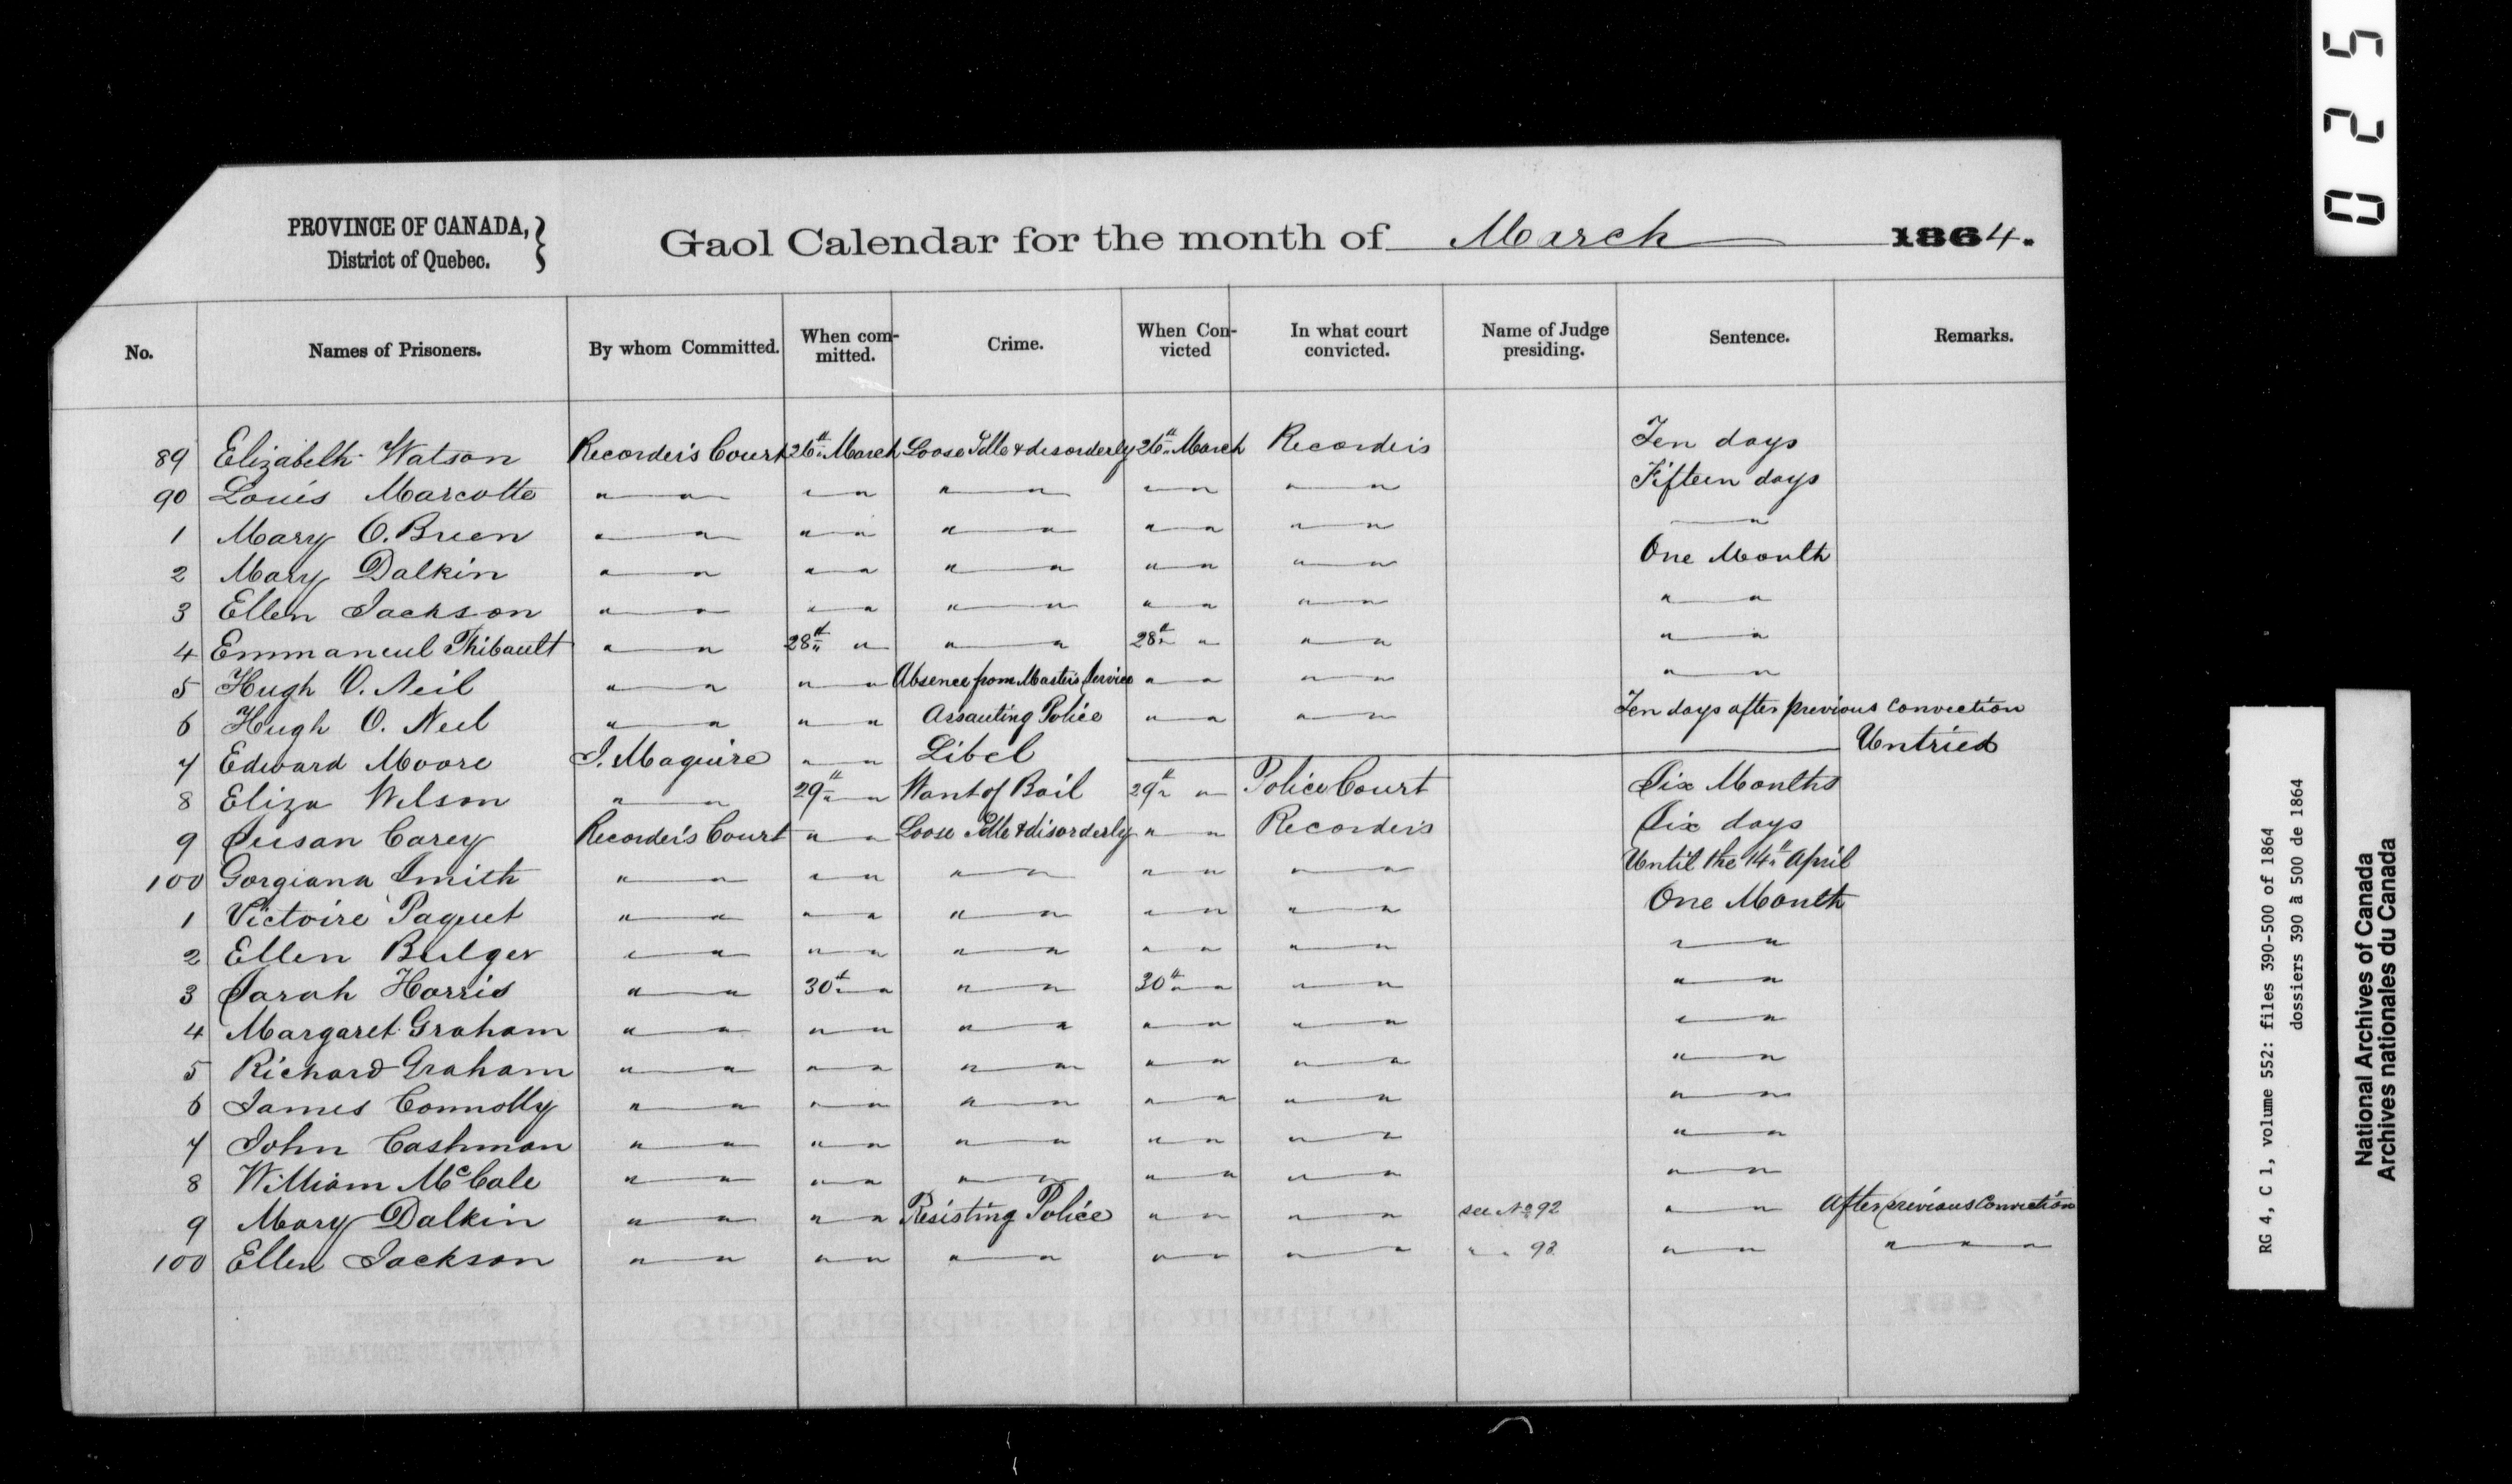 PROVINCE OF CANADA, } Gaol Calendar for the month of March 1864.
District of Quebec.
No. Names of Prisoners. By whom Committed. When committed. Crime. When Convicted In what court convicted. Name of Judge presiding. Sentence. Remarks.
89 Elizabeth Watson Recorder's Court 26th March Loose Idle & disorderly 26th March Recorders Ten days
90 Louis Marcotte " " " " " " " " " " Fifteen days
1 Mary O.Brien " " " " " " " " " " "
2 Mary Dalkin " " " " " " " " " " One Month
3 Ellen Jackson " " " " " " " " " " " "
4 Emmaneul Thibault " " 28th " " " 28th " " " " "
5 Hugh O. Neil " " " " Absence from Masters Service " " " " " "
6 Hugh O. Neil " " " " Assauting Police " " " " Ten days after previous conviction
7 Edward Moore J. Maguire " " Libel Untried
8 Eliza Wilson " " 29th " Want of Bail 29th " Police Court Six Months
9 Susan Carey Recorder's Court " " Loose Idle & disorderly " " Recorders Six days
100 Gorgiana Smith " " " " " " " " " " Until the 14th April
1 Victoire Paquet " " " " " " " " " " One Month
2 Ellen Bulger " " " " " " " " " " " "
3 Sarah Harris " " 30th " " " 30th " " " " "
4 Margaret Graham " " " " " " " " " " " "
5 Richard Graham " " " " " " " " " " " "
6 James Connolly " " " " " " " " " " " "
7 John Cashman " " " " " " " " " " " "
8 William McCale " " " " " " " " " " " "
9 Mary Dalkin " " " " Resisting Police " " " " see No 92 " " After previous Conviction
100 Ellen Jackson " " " " " " " " " " " " 93 " " " " "
025
RG 4, C 1, volume 552: files 390-500 of 1864
dossiers 390 à 500 de 1864
National Archives of Canada
Archives nationales du Canada